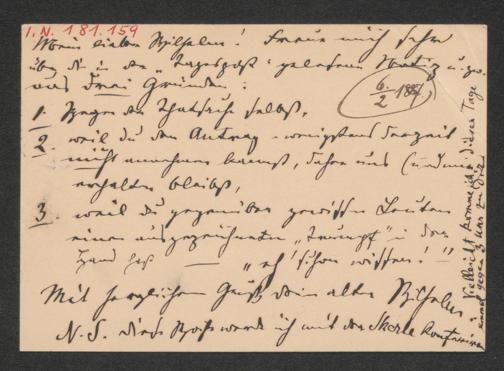 I.N. 181.159
Mein lieber Wilhelm! Freue mich sehr
über die in der „Tagespost" gelesene Notiz u. zw.
aus drei Gründen:
6./2 188
1. Wegen der Thatsache selbst,
2. weil du den Antrag - wenigstens derzeit
nicht annehmen kannst, daher uns
erhalten bleibst,
3. weil du gegenüber gewissen Leuten
einen ausgezeichneten „Trumpf" in der
Hand hast — „eh' schon wissen!"
Mit herzlichem Gruß dein alter Wilhelm.
N.S. diese werde ich mit der
Vielleicht komme ich dieser Tage
einmal gegen zu dir